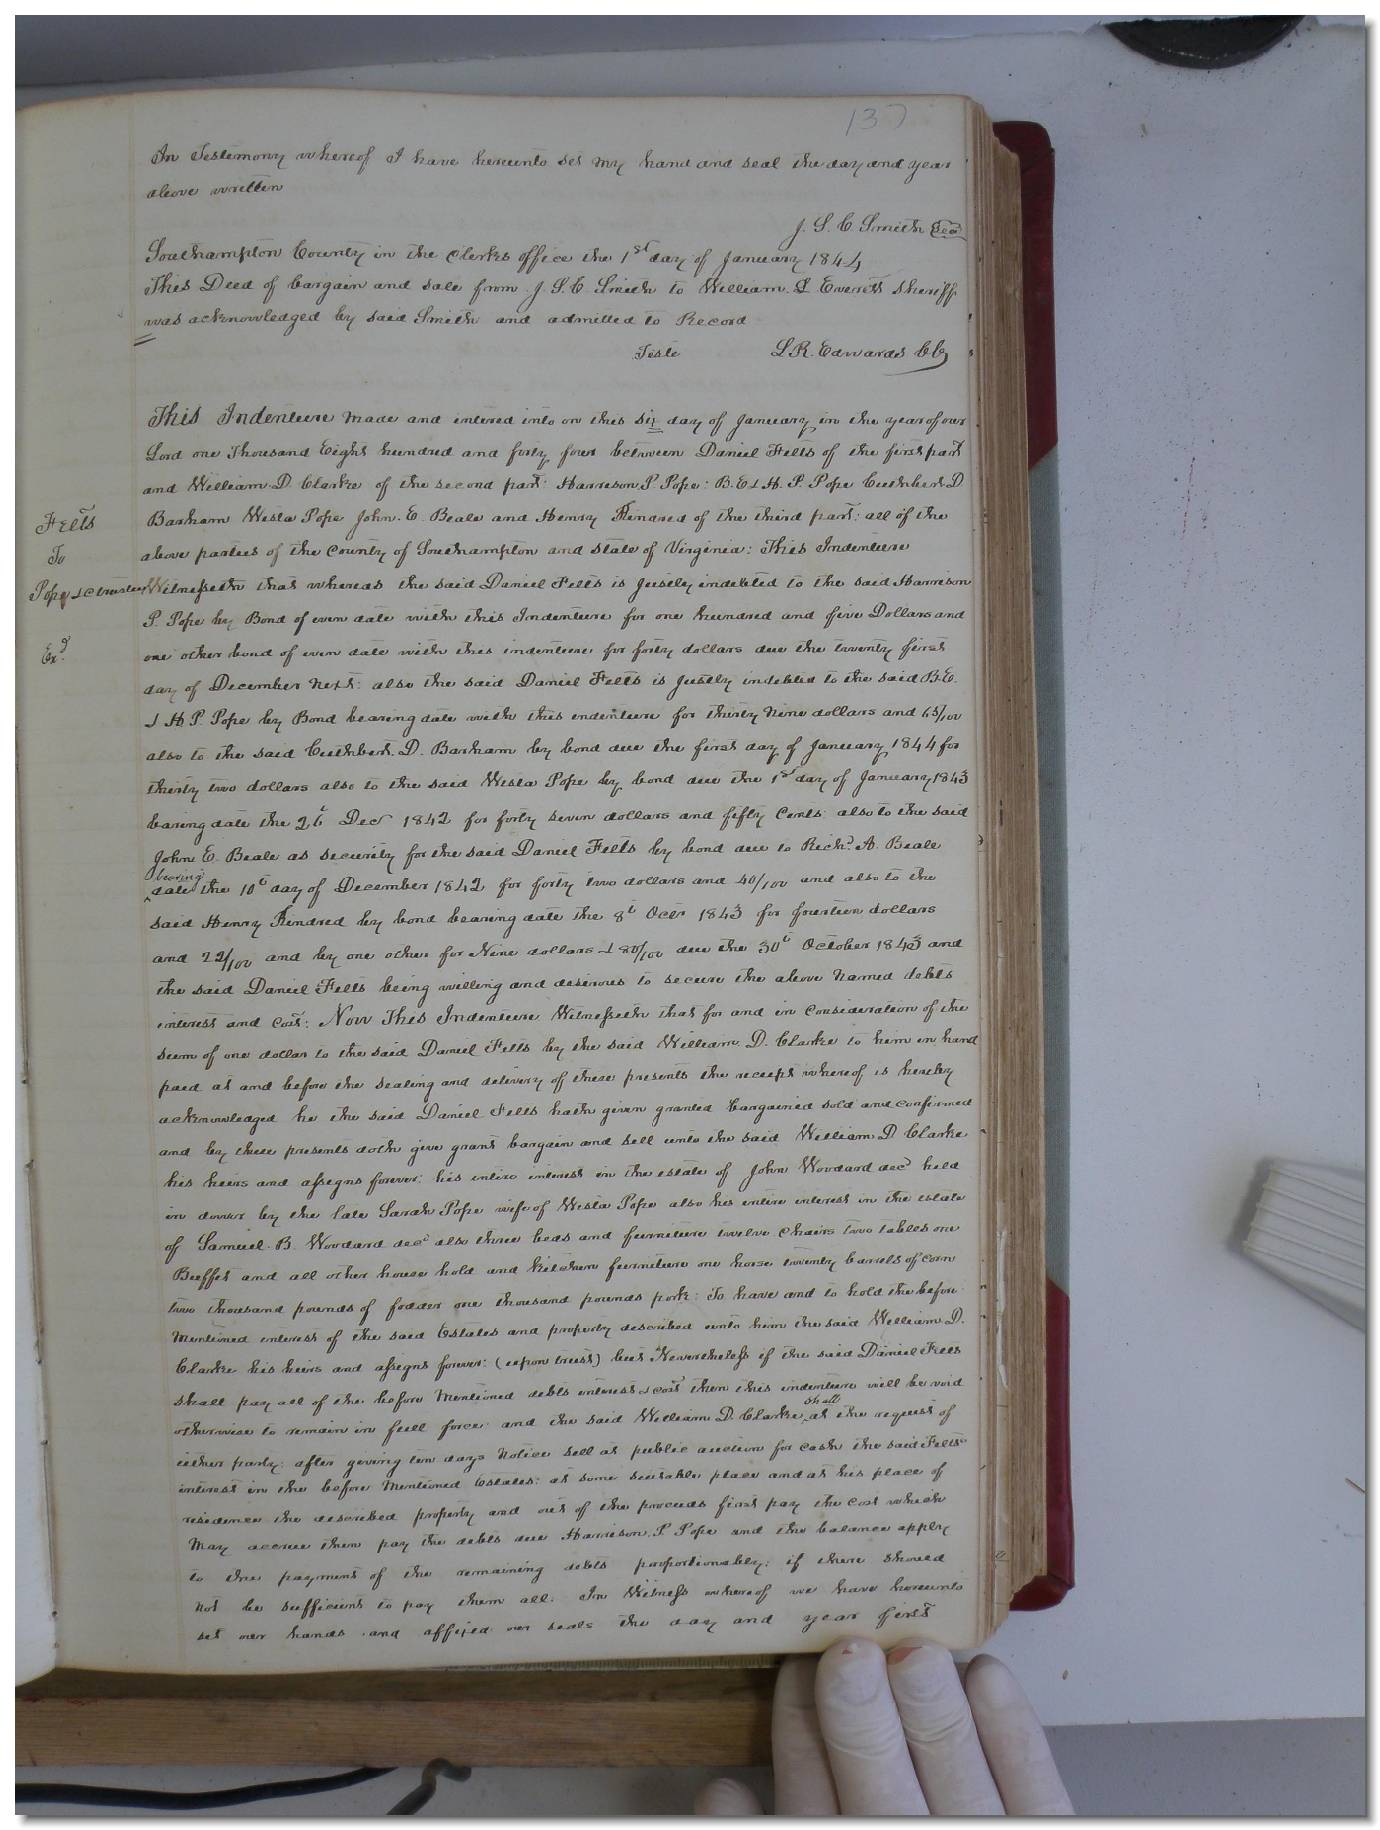 137
In Testimony whereof I have hereunto set my hand and seal the day and year
above written
J. S. C. Smith Seal
Southampton County in the Clerks office the 1st day of January 1844
This Deed of bargain and sale from J. S. C Smith to William. S Everett Sheriff
was acknowledged by said Smith and admitted to Record
Teste L R. Edwards CC
This Indenture made and intered into on this six day of January in the year of our
Lord one Thousand Eight hundred and forty four between Daniel Felts of the first part
and William. D. Clarke of the second part: Harrison. P. Pope: B. E & H. P. Pope Cuthbert D
Barham Wesla Pope John. E. Beale and Henry Kindred of the third part: all of the
above parties of the County of Southampton and state of Virginia: This Indenture
Witnesseth that whereas the said Daniel Felts is justly indebted to the said Harrison
P. Pope by Bond of even date with this Indenture for one hundred and five Dollars and
one other bond of even date with this indenture for forty dollars due the twenty first
day of December next: also the said Daniel Felts is justly indebted to the said B. E.
& H. P. Pope by Bond bearing date with this indenture for thirty nine dollars and 65/100
also to the said Cuthbert. D. Barham by bond due the first day of January 1844 for
thirty two dollars also to the said Wesla Pope by bond due the 1st day of January 1843
baring date the 26 Decr 1842 for forty seven dollars and fifty Cents: also to the said
John E. Beale as security for the said Daniel Felts by bond due to Richd. A. Beale
bearing
date the 10t day of December 1842 for forty two dollars and 40/100 and also to the
said Henry Kindred by bond bearing date the 8t Octr 1843 for fourteen dollars
and 22/100 and by one other for Nine dollars & 80/100 due the 30t October 1843 and
the said Daniel Felts being willing and desirous to secure the above named debts
interest and cost: Now This Indenture Witnesseth that for and in consideration of the
sum of one dollar to the said Daniel Felts by the said William. D. Clarke to him in hand
paid at and before the sealing and delivery of these presents the receipt whereof is hereby
acknowledged he the said Daniel Felts hath given granted bargained sold and confirmed
and by these presents doth give grant bargain and sell unto the said William D Clarke
his heirs and assigns forever: his entire interest in the estate of John Woodard decd held
in dower by the late Sarah Pope wife of Wesla Pope also his entire interest in the estate
of Samuel. B. Woodard decd also three beds and furniture twelve chairs two tables one
Buffet and all other house hold and kitchen furniture one horse twenty barrels of corn
two thousand pounds of fodder one thousand pounds pork: To have and to hold the before
mentioned interest of the said Estates and property described unto him the said William D.
Clarke his heirs and assigns forever: (upon trust) but Nevertheless if the said Daniel Felts
shall pay all of the before mentioned debts interest & cost then this indenture will be void
shall
otherwise to remain in full force: and the said William D. Clarke at the request of
either party: after giving ten days notice sell at public auction for cash the said Felts
interest in the before mentioned Estates: at some suitable place and at his place of
residence the described property and out of the proceeds first pay the cost which
may accrue then pay the debts due Harrison. P. Pope and the balance apply
to the payment of the remaining debts proportionably: if there should
not be sufficient to pay them all. In Witness whereof we have hereunto
set our hands and affixed our seals the day and year first
Felts
To
Pope &C trustee
Exd